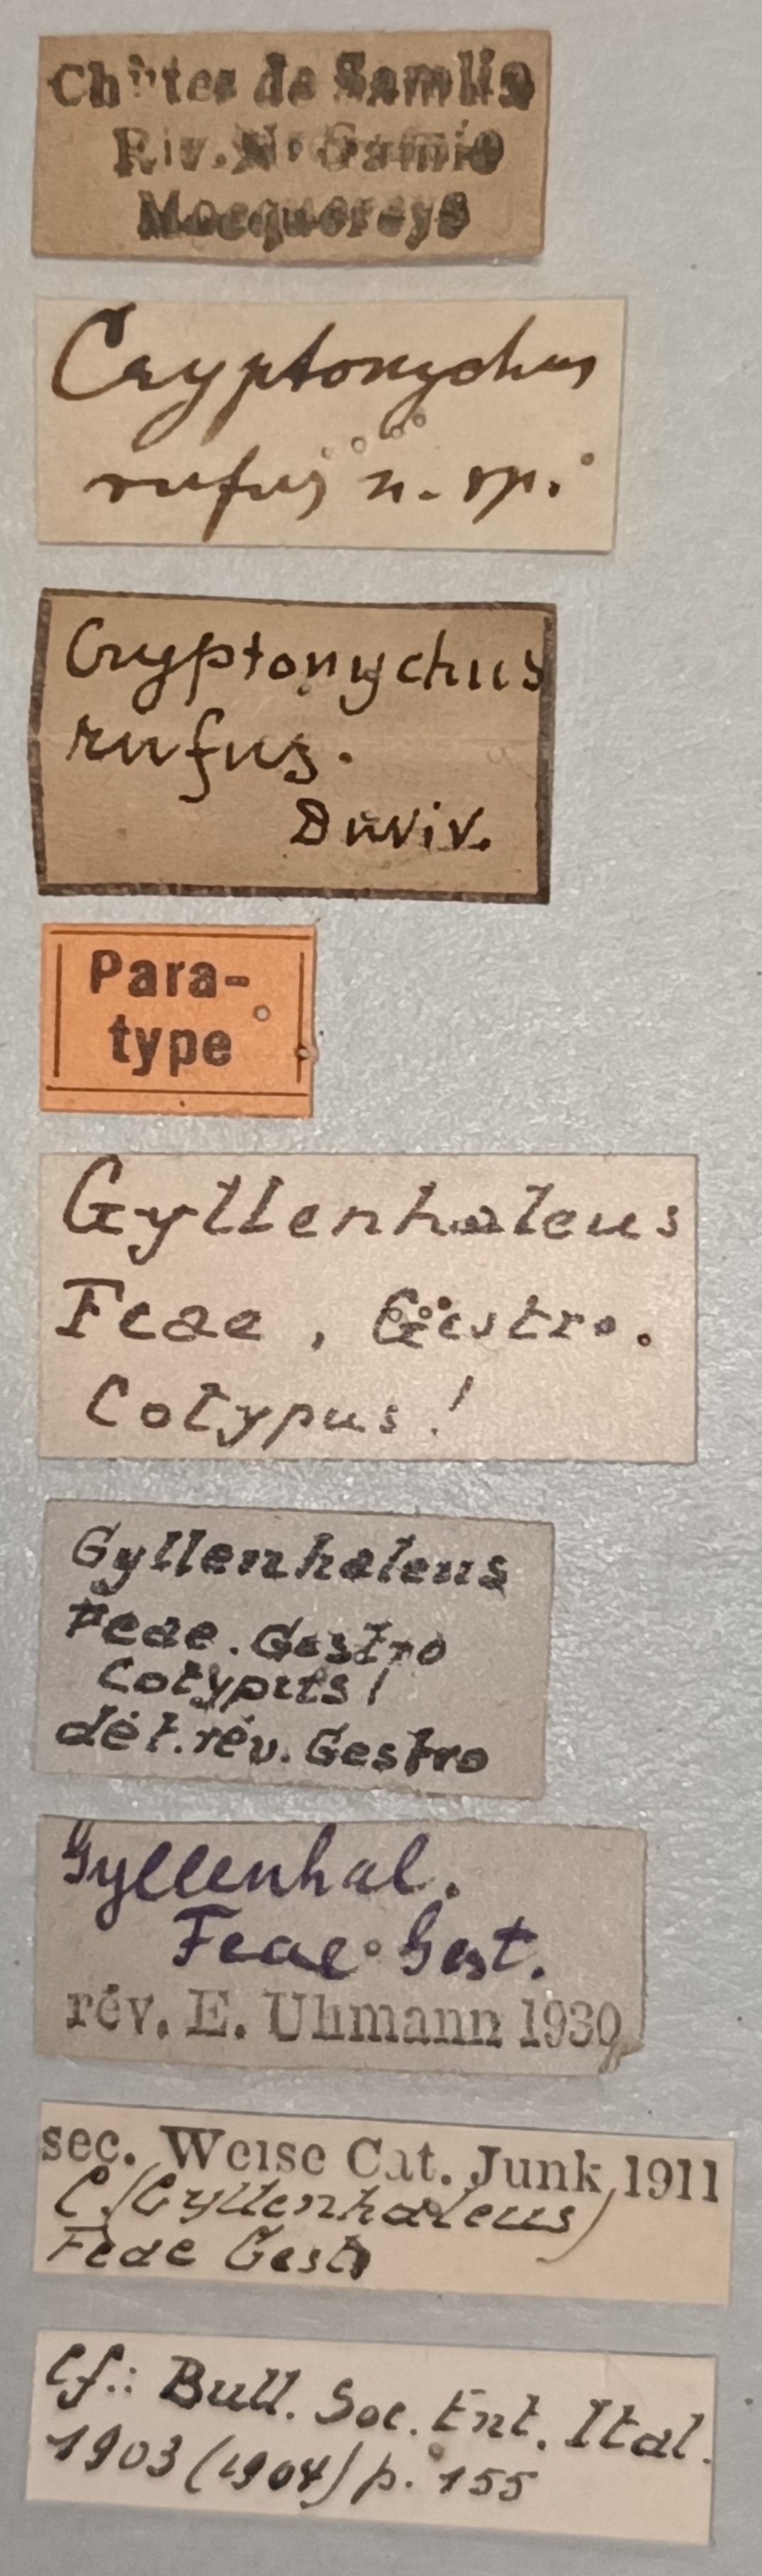 Chûtes de Samlia
Riv. N' Gamie
Mocquereys
Cryptonychus
rufus n. sp.
Cryptonychus
rufus.
Duviv.
Para-
type
Gyllenhaleus
Feae, Gestro.
Cotypus!
Gyllenhaleus
Feae. Gestro
Cotypus!
dét. rév. Gestro
Gyllenhal.
Feae Gest.
rév. E. Uhmann 1930
sec. Weise Cat. Junk 1911
C. (Gyllenhaleus)
Feae Gestr
Cf.: Bull. Soc. Ent. Ital.
1903 (1904) p. 155